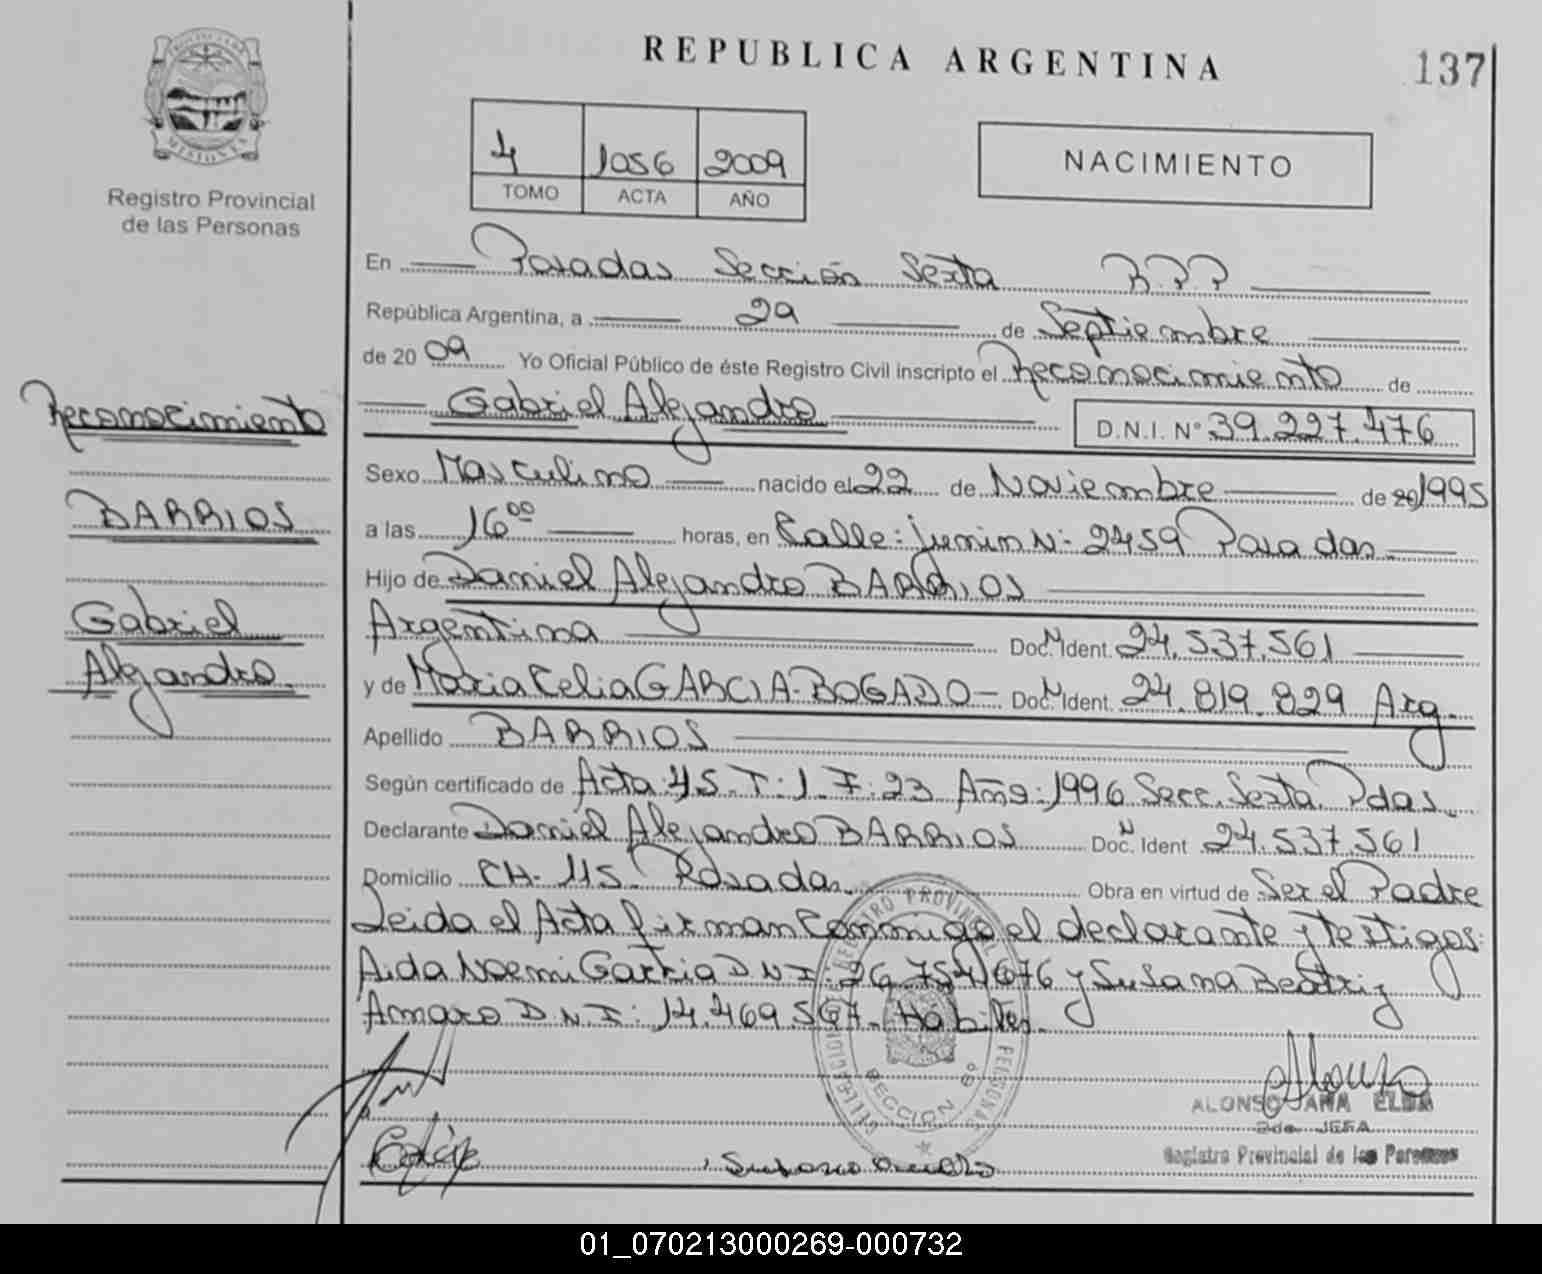 REPUBLICA ARGENTINA
137
PROVINCIA DE
MISIONES
Registro Provincial
de las Personas
4 1056 2009
TOMO ACTA AÑO
NACIMIENTO
En Posadas Sección Sexta R.P.P
República Argentina, a 29 de Septiembre
de 2009 Yo Oficial Público de éste Registro Civil inscripto el Reconocimiento de
Gabriel Alejandro D.N.I. N° 39.227.476
Sexo Masculino nacido el 22 de Noviembre de 20 1995
a las 16 00 horas, en Calle: Junin N- 2459 Posadas
Hijo de Daniel Alejandro BARRIOS
Argentina Doc. N Ident. 24.537.561
y de Maria Celia GARCIA-BOGADO Doc. N Ident. 24.819.829 Arg.
Apellido BARRIOS
Según certificado de Acta: 45. T: 1 F: 23 Año: 1996 Secc. Sexta Pdas
Declarante Daniel Alejandro BARRIOS Doc. N Ident 24.537.561
Domicilio CH- 115- Posadas Obra en virtud de Ser el Padre
Leida el Acta firman Conmigo el declarante y testigos:
Aida Noemi Garcia D.N.I: 26.754.676 y Susana Beatriz
Amaro D.N.I: 14.469.567. Hábiles.
Reconocimiento
BARRIOS
Gabriel
Alejandro
SECCION 6°
ALONSO ANA ELBA
2da JEFA
Registro Provincial de las Personas
01_070213000269-000732